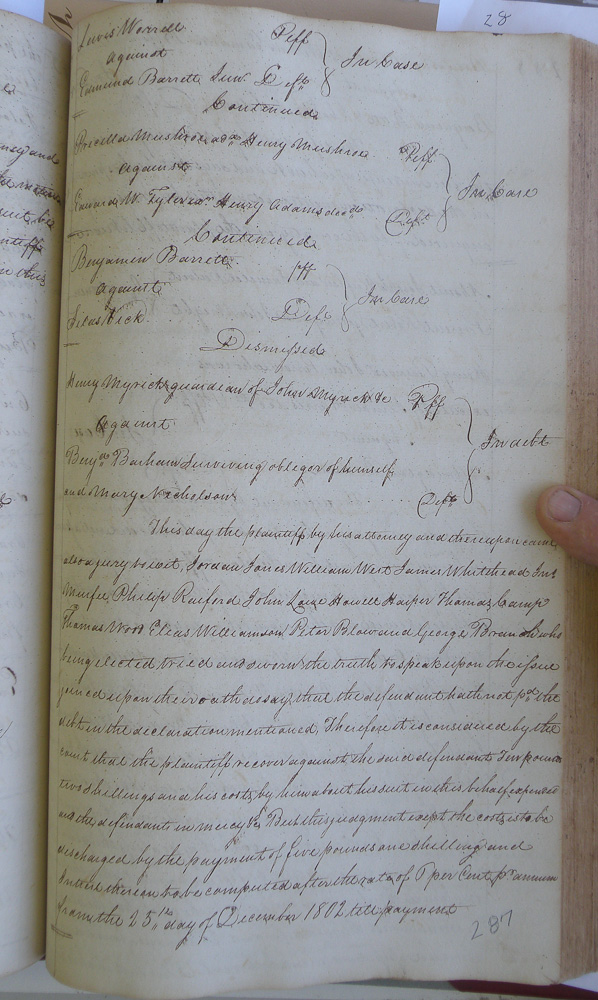 28
Lewis Worrell Plff
against In Case
Edmund Barrett Junr. Deft
Continued
Pricella Mushroe adx Henry Mushroe Plff
against In Case
Edward W. Tyler exr. Henry Adams decd Deft
Continued
Benjamin Barrett Plff
against In Case
Silas Kick Deft
Dismissed
Henry Myrick guardian of John Myrick &c Plff
Against In debt
Benja Barham Surviving obligor of himself
and Mary Nicholson Deft
This day the plaintiff by his attorney and thereupon came
also a jury to wit, Jordan Jones William West James Whitehead Jno
Murfee, Philip Raiford John Howell Harper Thomas Camp
Thomas Elias Williamson Peter Blow and George Branch who
being elected, tried and sworn the truth to speak upon the issue
joined upon their oath do say, that the defendant hath not pd. the
debt in the declaration mentioned, Therefore it is considered by the
court that the plaintiff recover against the said defendant pounds
two shillings and his costs by him about his suit in this behalf expended
and the defendant in mercy &c But this judgment except the costs is to be
discharged by the payment of five pounds one shilling and
Interest thereon to be computed after the rate of per Cent pr. annum
from the 25th day of December 1802 till payment
287